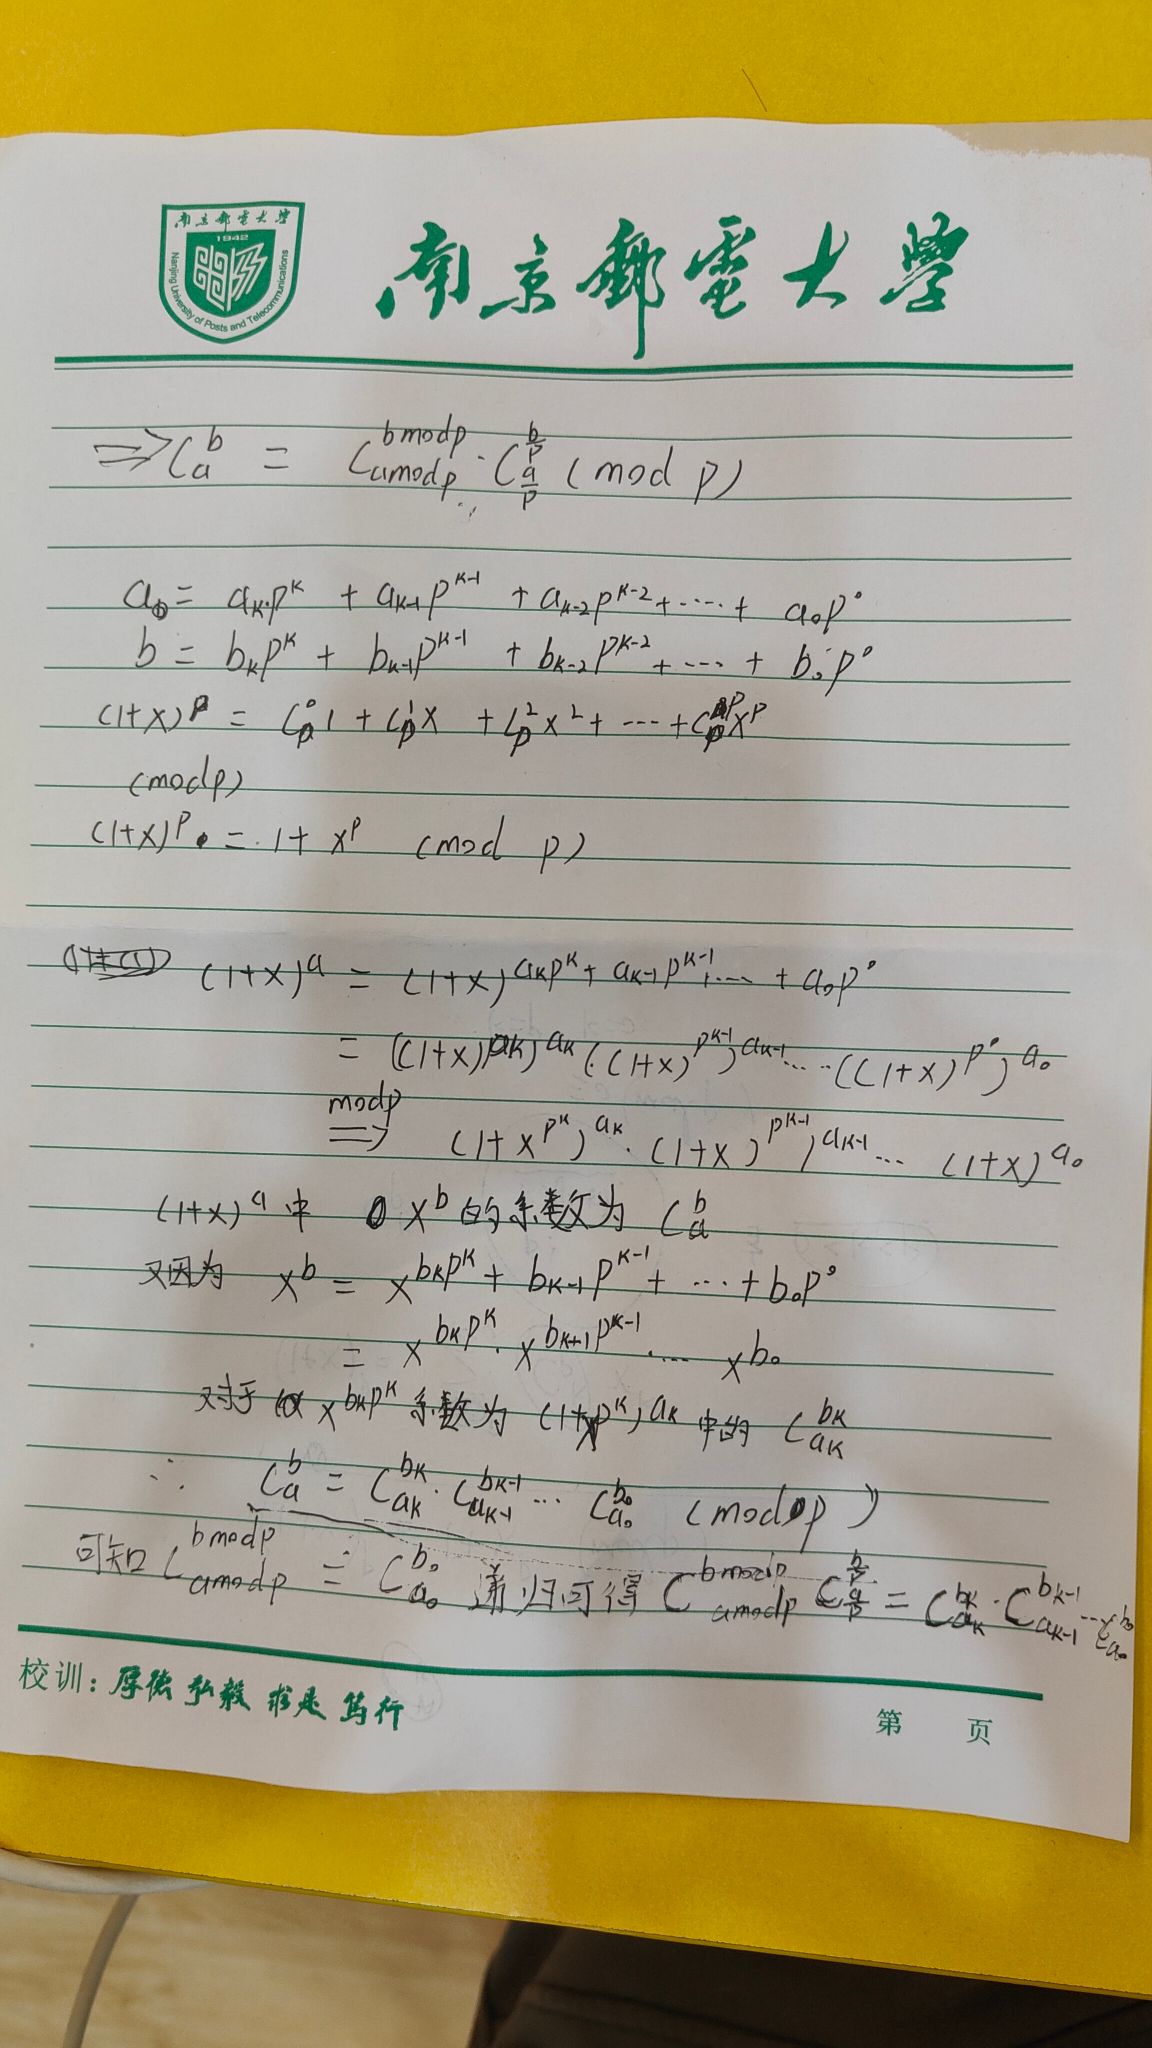 南京邮电大学
1942
Nanjing University of Posts and Telecommunications
南京郵電大學
⇒ C_a^b = C_{a mod p}^{b mod p} · C_{a/p}^{b/p} (mod p)
a = a_k·p^k + a_{k-1}p^{k-1} + a_{k-2}p^{k-2} + ···· + a_0p^0
b = b_kp^k + b_{k-1}p^{k-1} + b_{k-2}p^{k-2} + ··· + b_0p^0
(1+x)^p = C_p^0 1 + C_p^1 x + C_p^2 x^2 + ··· + C_p^p x^p
(mod p)
(1+x)^p = 1 + x^p (mod p)
(1+x)^a = (1+x)^{a_kp^k + a_{k-1}p^{k-1} + ··· + a_0p^0}
= ((1+x)^{p^k})^{a_k} · ((1+x)^{p^{k-1}})^{a_{k-1}} ····· ((1+x)^{p^0})^{a_0}
mod p
⇒ (1+x^{p^k})^{a_k} · (1+x)^{p^{k-1}})^{a_{k-1}} ··· (1+x)^{a_0}
(1+x)^a 中 x^b 的系数为 C_a^b
又因为 x^b = x^{b_kp^k + b_{k-1}p^{k-1} + ··· + b_0p^0}
= x^{b_kp^k} · x^{b_{k+1}p^{k-1}} ···· x^{b_0}
对于 x^{b_kp^k} 系数为 (1+x^{p^k})^{a_k} 中的 C_{a_k}^{b_k}
∴ C_a^b = C_{a_k}^{b_k} · C_{a_{k-1}}^{b_{k-1}} ··· C_{a_0}^{b_0} (mod p)
可知 C_{a mod p}^{b mod p} = C_{a_0}^{b_0} 递归可得 C_{a mod p}^{b mod p} C_{a/p}^{b/p} = C_{a_k}^{b_k} · C_{a_{k-1}}^{b_{k-1}} ··· C_{a_0}^{b_0}
校训：厚德 弘毅 求是 笃行
第 页